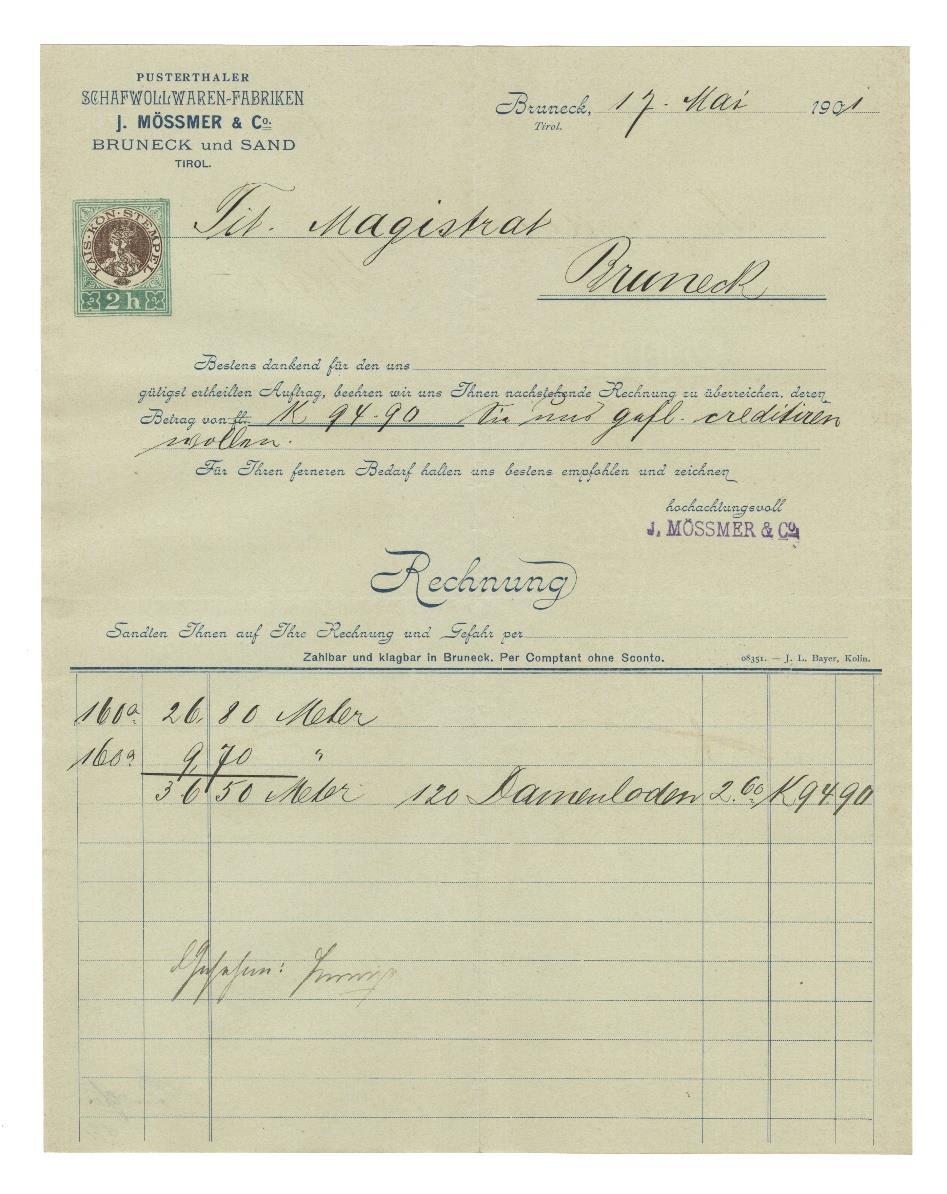 PUSTERTHALER
SCHAFWOLLWAREN-FABRIKEN
J. MÖSSMER & Co.
BRUNECK und SAND
TIROL.
Bruneck, 17. Mai 1901
Tirol.
KAIS·KÖN·STEMPEL
2 h
Tit. Magistrat
Bruneck
Bestens dankend für den uns
gütigst ertheilten Auftrag, beehren wir uns Ihnen nachstehende Rechnung zu überreichen, deren
Betrag von fl. K 94.90 Sie uns gefl. creditiren
wollen.
Für Ihren ferneren Bedarf halten uns bestens empfohlen und zeichnen
hochachtungsvoll
J. MÖSSMER & Co.
Rechnung
Sandten Ihnen auf Ihre Rechnung und Gefahr per
Zahlbar und klagbar in Bruneck. Per Comptant ohne Sconto. 08351. — J. L. Bayer, Kolin.
160a 26 80 Meter
160a 9,70 "
36 50 Meter 120 Damenloden 2.60 K 94 90
Gesehen: